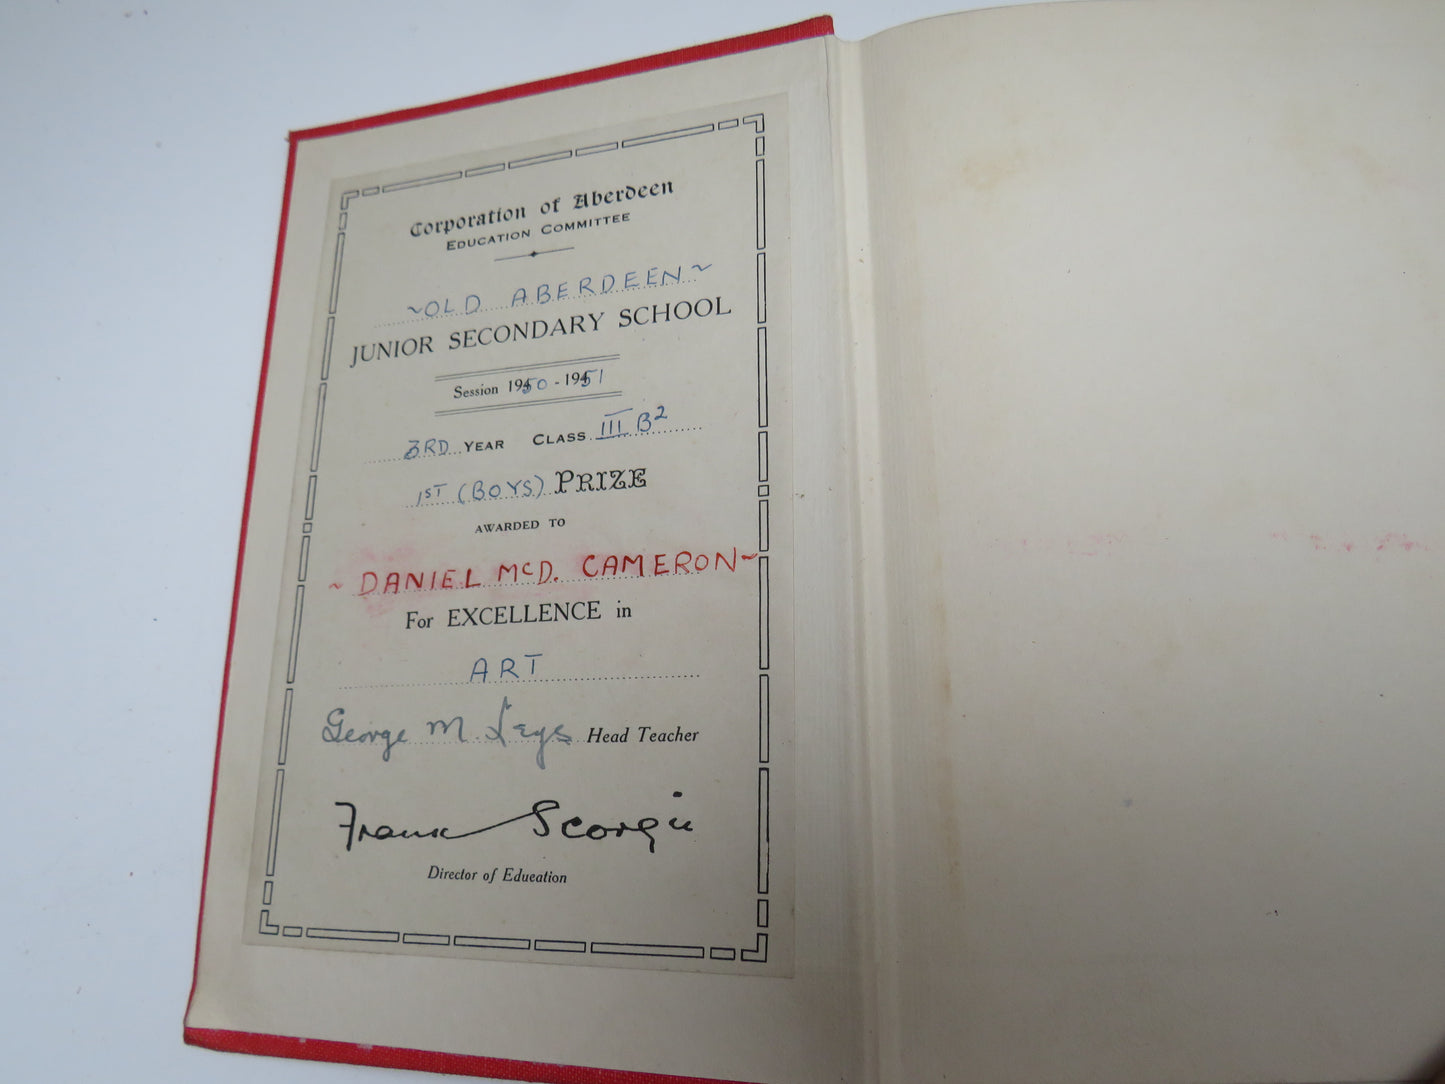 Corporation of Aberdeen
EDUCATION COMMITTEE
~OLD ABERDEEN~
JUNIOR SECONDARY SCHOOL
Session 1950 - 1951
3RD YEAR CLASS III B2
1ST (BOYS) PRIZE
AWARDED TO
~ DANIEL McD. CAMERON~
For EXCELLENCE in
ART
George M. Leys Head Teacher
Frank Scorgie
Director of Education